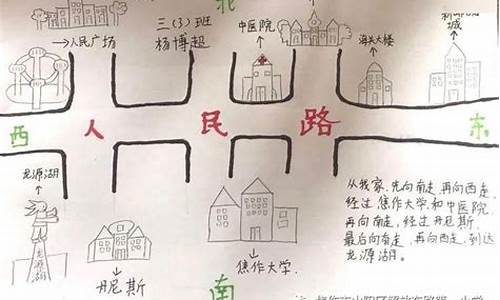 北
三(3)班
杨博超
→人民广场
中医院
海关大楼
城
西 人 民 路 东
龙源湖
龙源湖
丹尼斯
焦作大学
南
从我家,先向南走,再向西走,
经过焦作大学和中医院
再向南走,经过丹尼斯,
最后向南走,再向西走,到达
龙源湖。